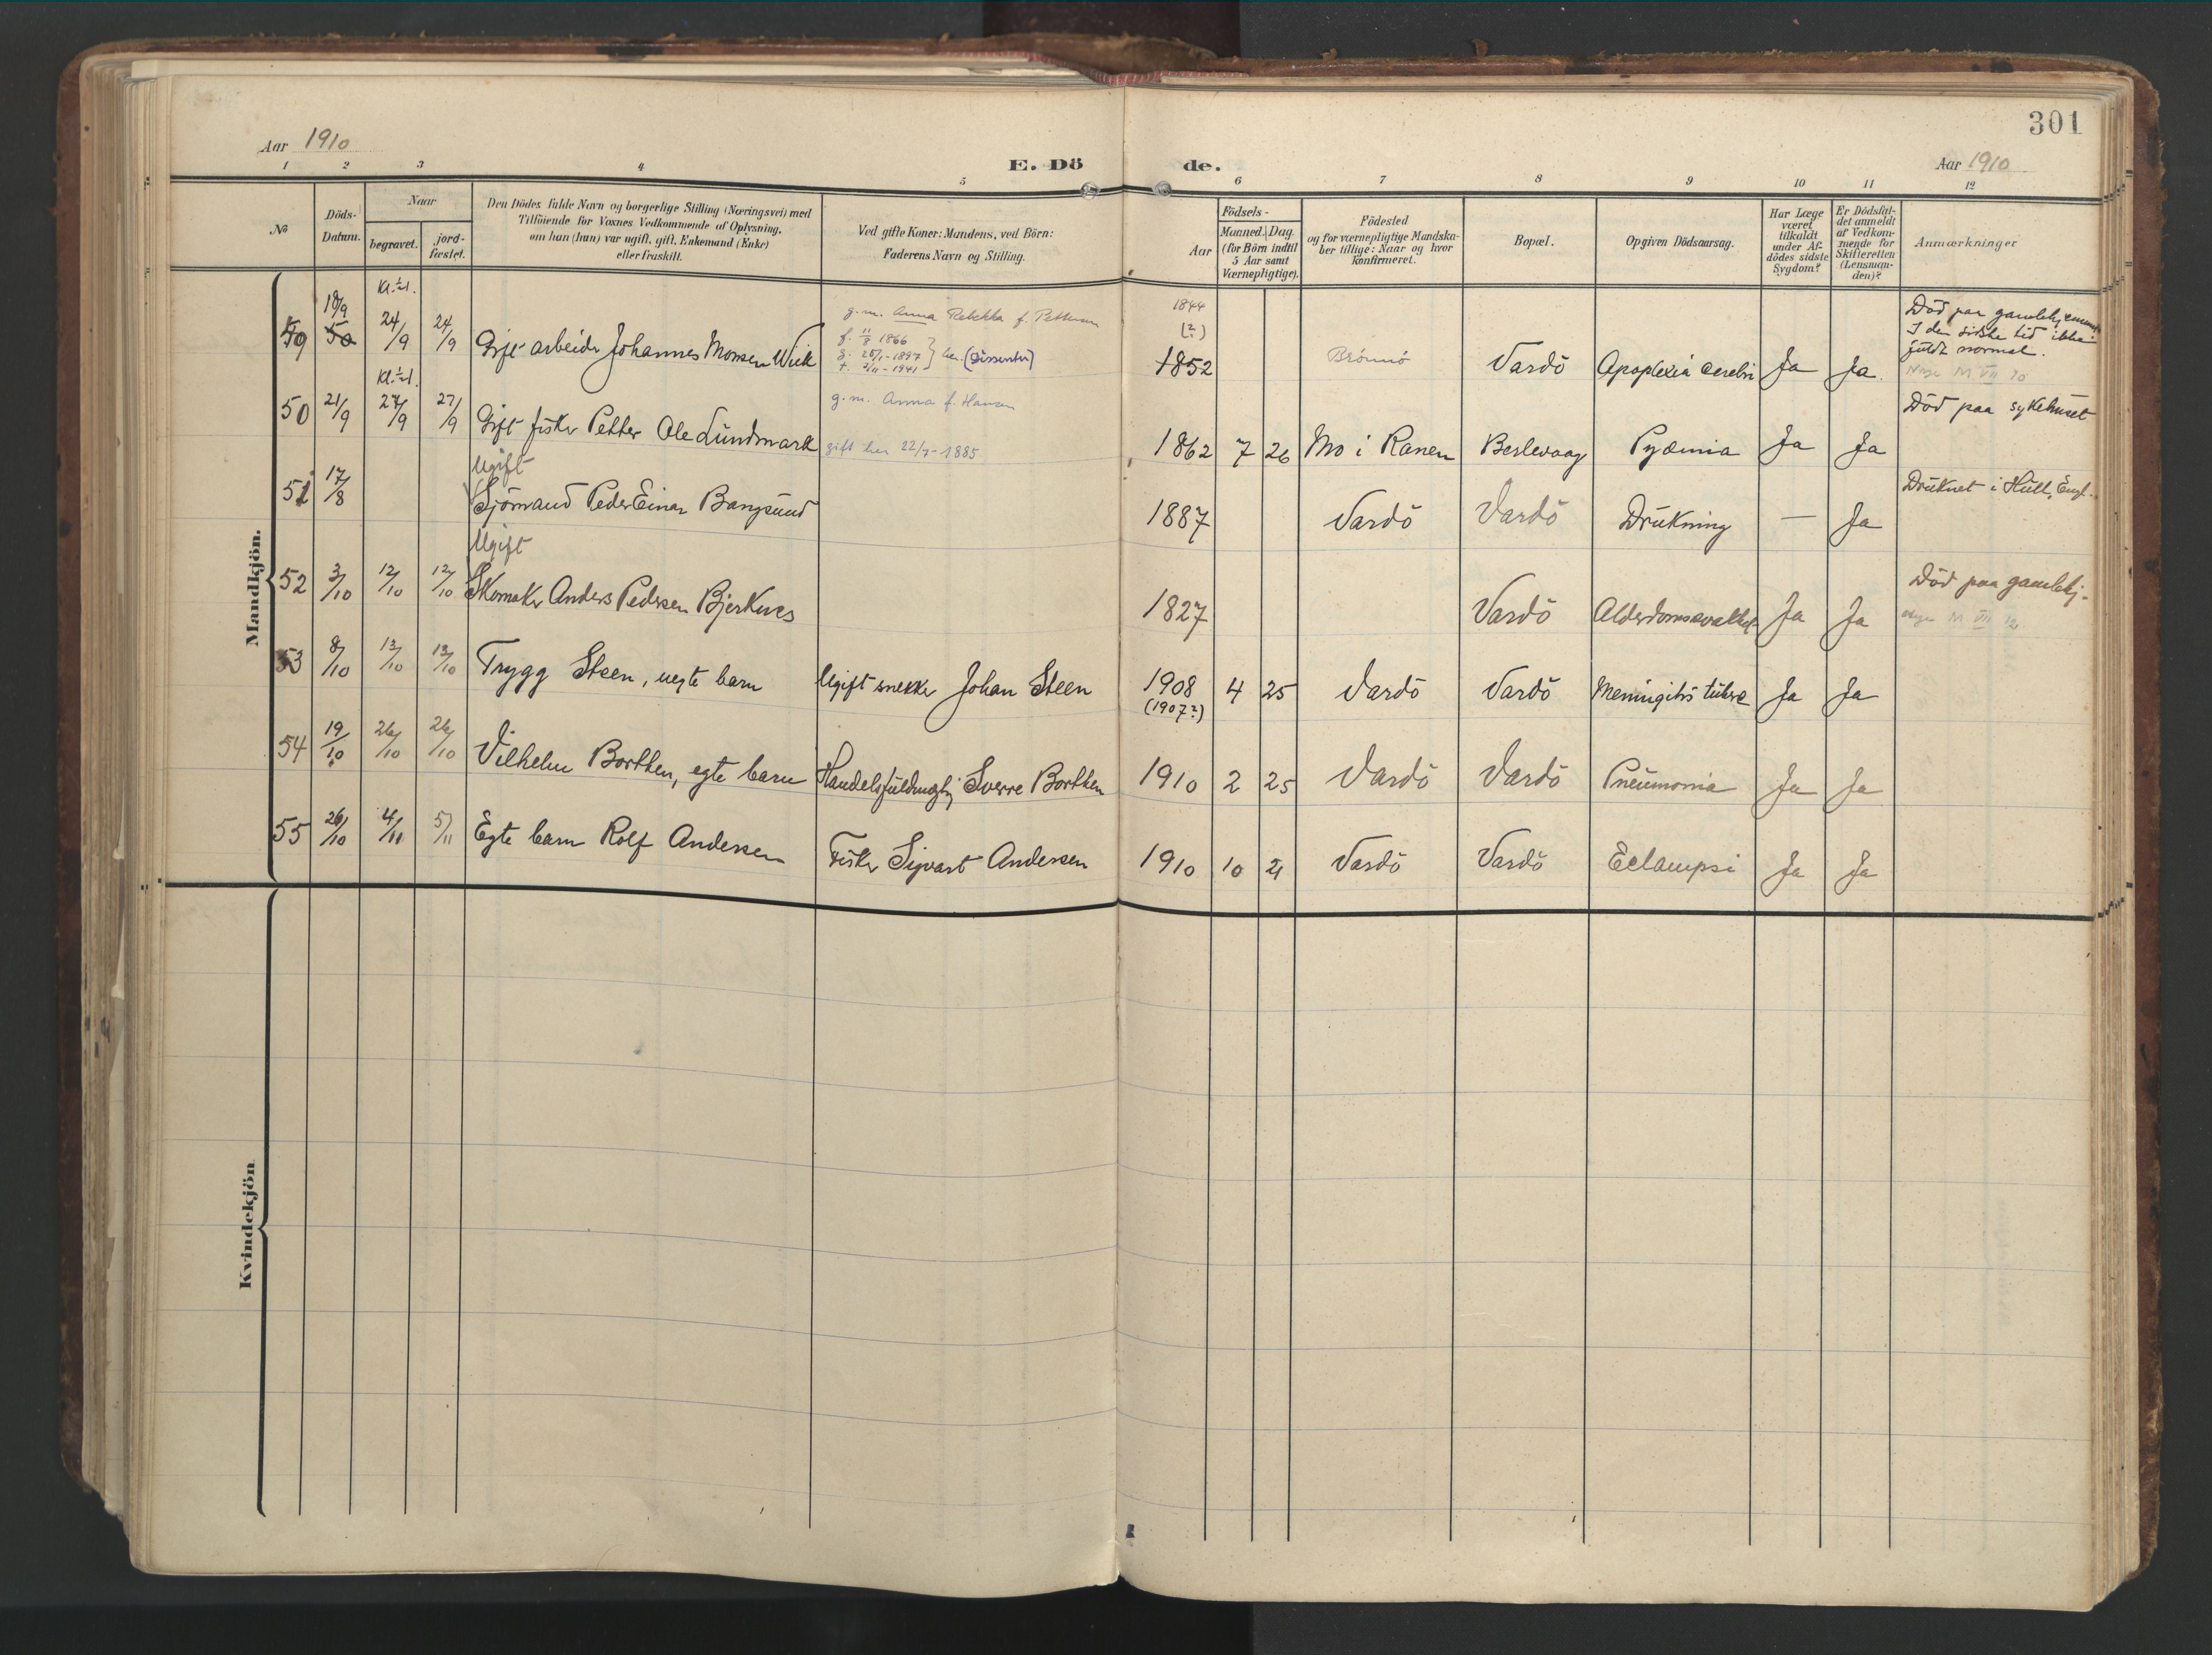 301
Aar 1910
E. Dö de.
Aar 1910
1 2 3 4 5 6 7 8 9 10 11 12
No
Döds-Datum.
Naar
begravet.
jord-fæstet.
Den Dödes fulde Navn og borgerlige Stilling (Næringsvei) med
Tilföiende for Voxnes Vedkommende af Oplysning,
om han (hun) var ugift, gift, Enkemand (Enke)
eller fraskilt.
Ved gifte Koner: Mandens, ved Börn:
Faderens Navn og Stilling.
Födsels-
Aar
Maaned. Dag.
(for Börn indtil
5 Aar samt
Værnepligtige).
Födested
og for værnepligtige Mandska-
ber tillige: Naar og hvor
Konfirmeret.
Bopæl.
Opgiven Dödsaarsag.
Har Læge
været
tilkaldt
under Af-
dödes sidste
Sygdom?
Er Dödsfal-
det anmeldt
af Vedkom-
mende for
Skifteretten
(Lensman-
den)?
Anmærkninger
Mandkjön.
Kl. ½1.
g. m. Anna Rebekka f. Pettersen
1844
Död paa gamlehjemmet
18/9
(?)
I den sidste tid ikke
f. 11/8 1866
fuldt normal.
g. 25/1-1897 her. (Dissenter)
t. 2/11-1941
49 50 24/9 24/9 Gift arbeider Johannes Monsen Wiik 1852 Brönnö Vardö Apoplexia cerebri Ja Ja.
Kl. ½1.
g. m. Anna f. Hansen
Död paa sykehuset
50 21/9 27/9 27/9 Gift fisker Petter Ole Lundmark gift her 22/7-1885 1862 7 26 Mo i Ranen Berlevaag Pyæmia Ja Ja
Ugift
Druknet i Hull, Engl.
51 17/8 Sjömand Peder Einar Bangsund 1887 Vardö Vardö Drukning — Ja
Ugift
Död paa gamlehj.
52 3/10 12/10 12/10 Skomaker Anders Pedersen Bjerknes 1827 Vardö Alderdomssvakhet Ja Ja
53 8/10 13/10 13/10 Trygg Steen, uegte barn Ugift snekker Johan Steen 1908 4 25 Vardö Vardö Meningitis tuberc Ja Ja
(1907?)
54 19/10 26/10 26/10 Vilhelm Borthen, egte barn Handelsfuldmegtig Sverre Borthen 1910 2 25 Vardö Vardö Pneumonia Ja Ja
55 26/10 4/11 5/11 Egte barn Rolf Andersen Fisker Sigvart Andersen 1910 10 21 Vardö Vardö Eclampsi Ja Ja
Kvindekjön